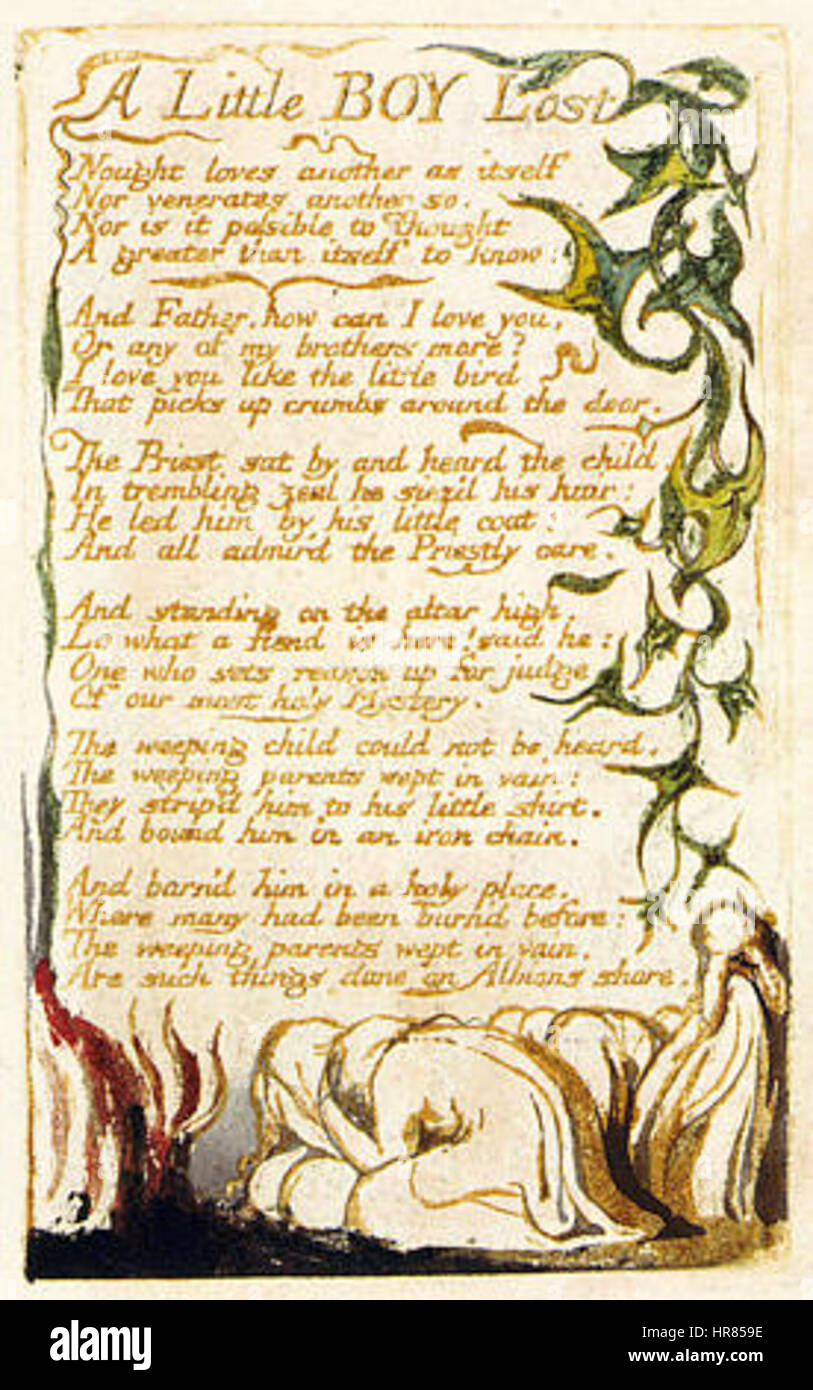 A Little BOY Lost
Nought loves another as itself
Nor venerates another so.
Nor is it possible to Thought
A greater than itself to know:
And Father, how can I love you,
Or any of my brothers more?
I love you like the little bird
That picks up crumbs around the door.
The Priest sat by and heard the child.
In trembling zeal he siez'd his hair:
He led him by his little coat:
And all admir'd the Priestly care.
And standing on the altar high,
Lo what a fiend is here! said he:
One who sets reason up for judge
Of our most holy Mystery.
The weeping child could not be heard.
The weeping parents wept in vain:
They strip'd him to his little shirt.
And bound him in an iron chain.
And burn'd him in a holy place.
Where many had been burn'd before:
The weeping parents wept in vain.
Are such things done on Albions shore.
alamy
Image ID: HR859E
www.alamy.com